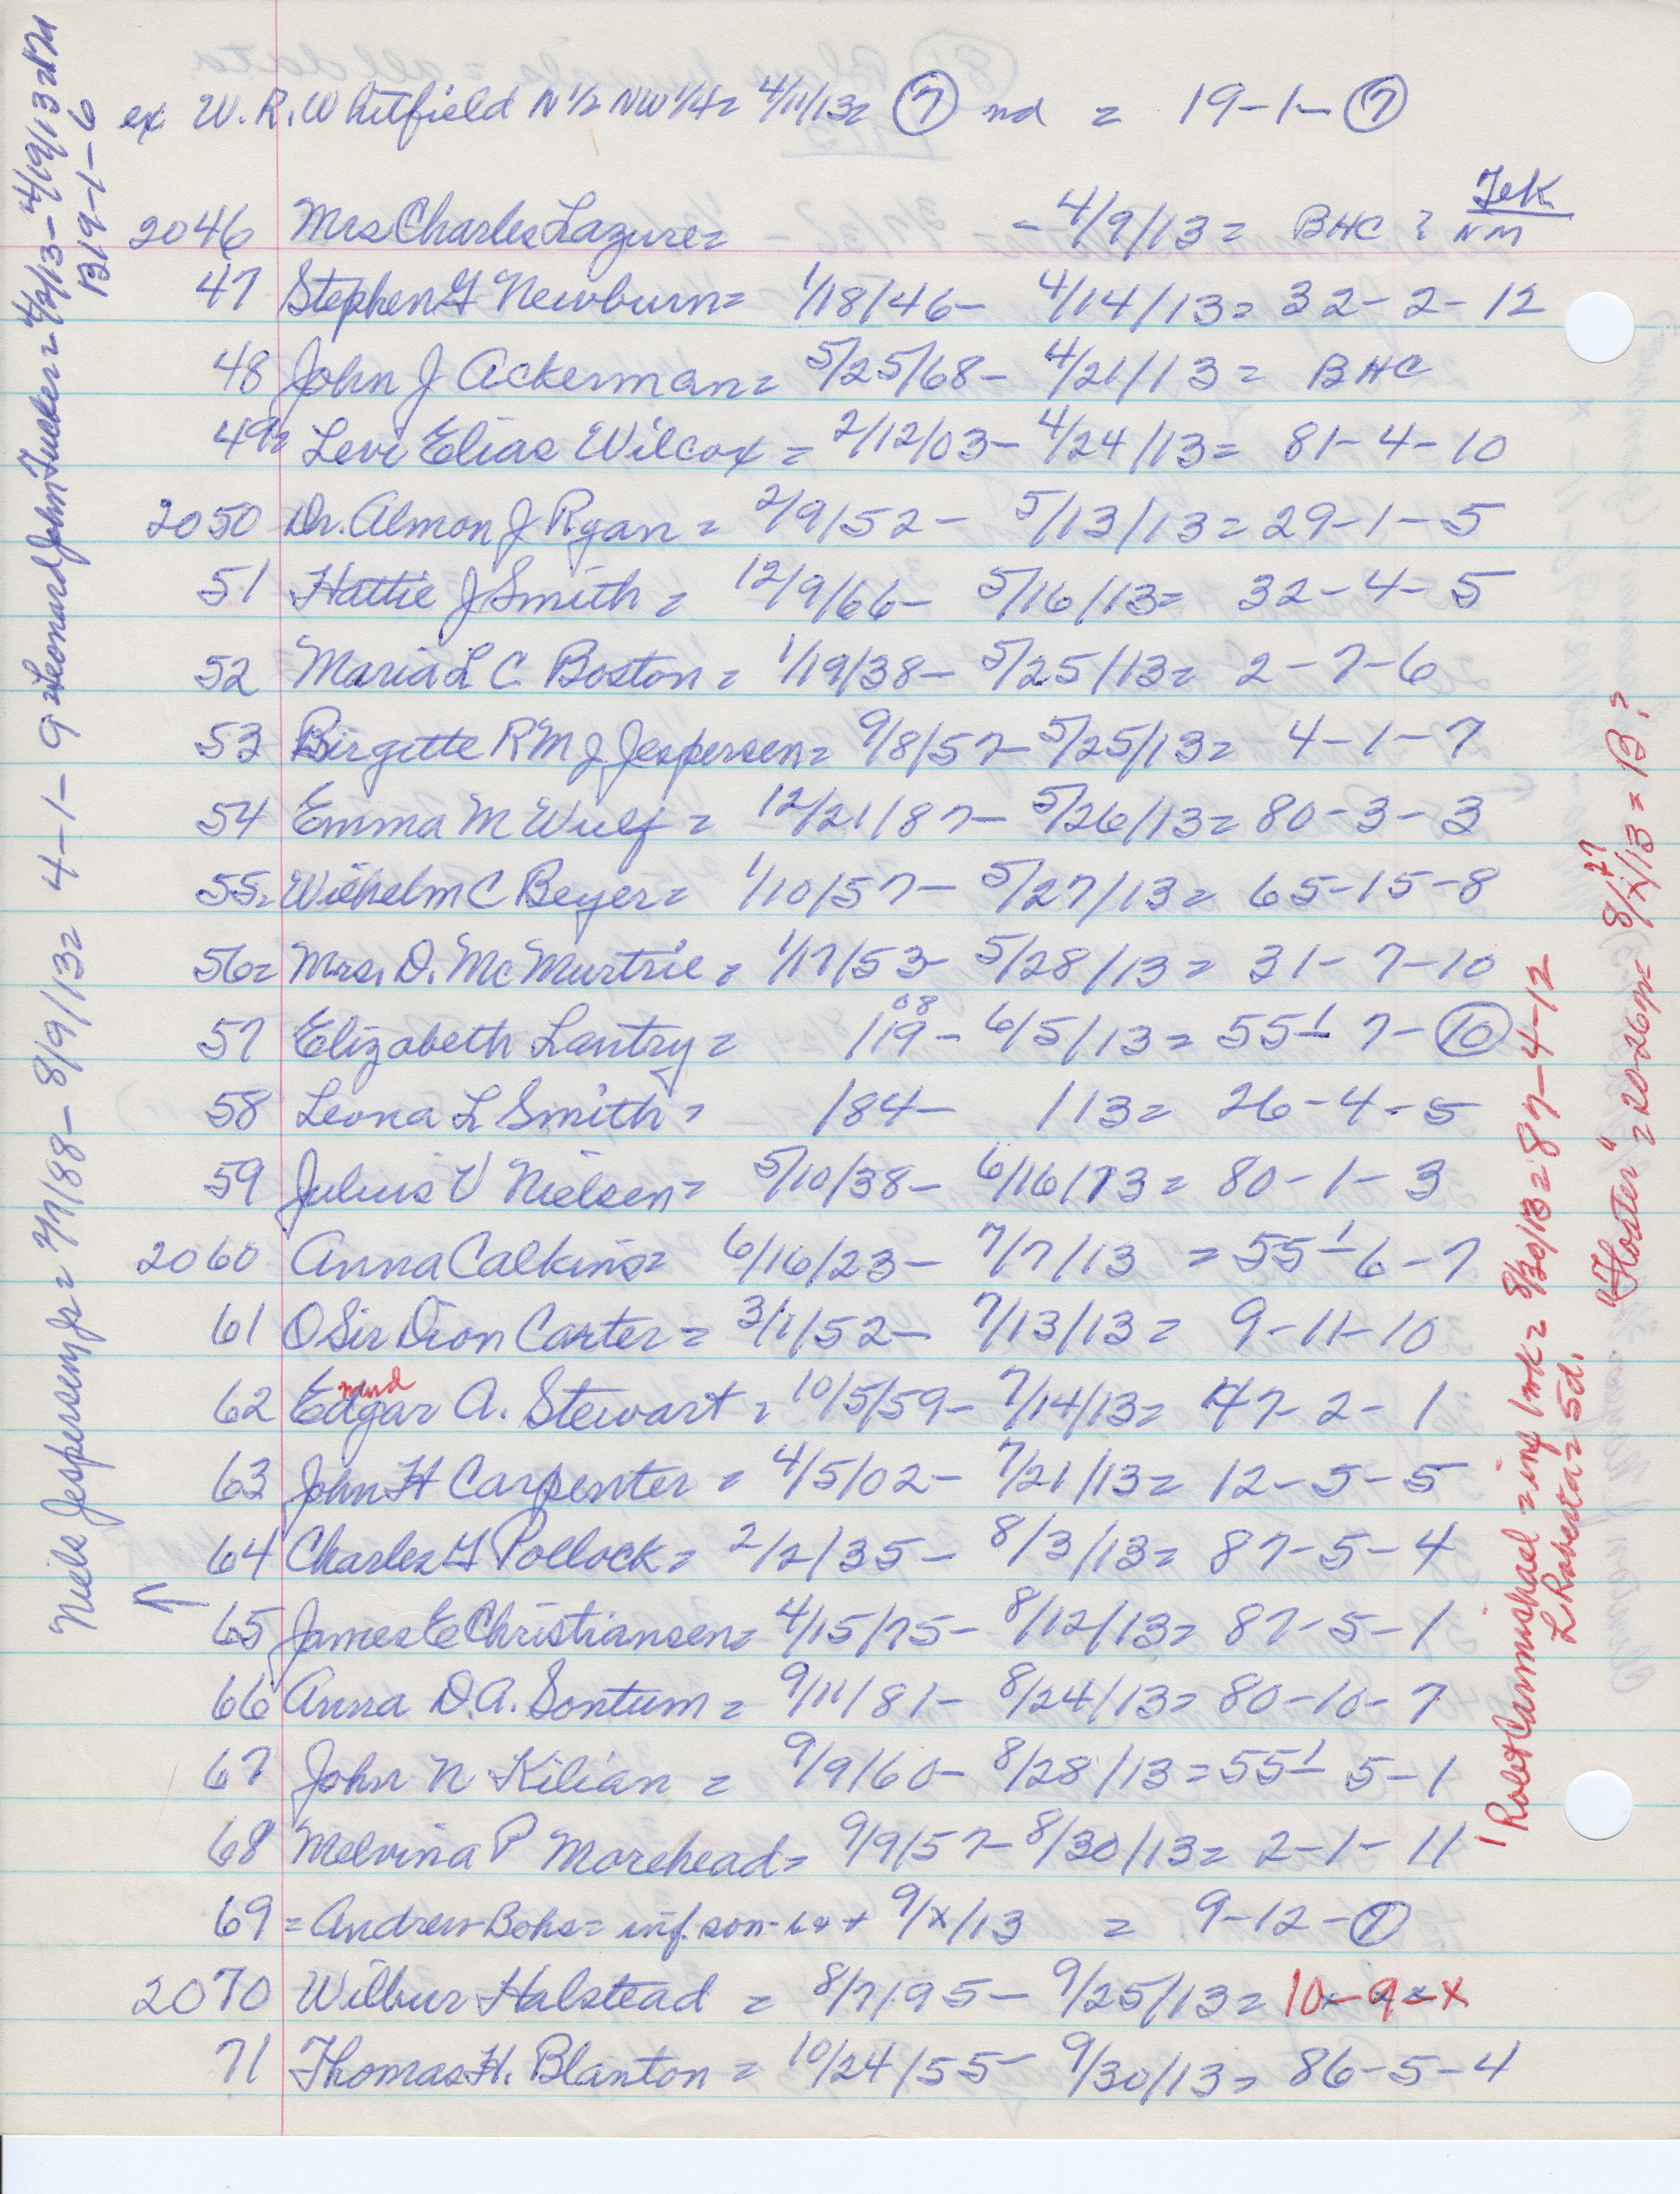 ex W. R. Whitfield N 1/2 NW 1/4 = 4/11/13 = (7) nd = 19-1-(7)
2046 Mrs Charles Lazure = - 4/9/13 = BHC ? Tek
NM
47 Stephen G Newburn = 1/18/46 - 4/14/13 = 32-2-12
48 John J Ackerman = 5/25/68 - 4/21/13 = BHC
49 = Levi Elias Wilcox = 2/12/03 - 4/24/13 = 81-4-10
2050 Dr. Almon J Ryan = 2/9/52 - 5/13/13 = 29-1-5
51 Hattie J Smith = 12/9/66 - 5/16/13 = 32-4-5
52 Maria L C Boston = 1/19/38 - 5/25/13 = 2-7-6
53 Birgitte R M J Jespersen = 9/8/57 - 5/25/13 = 4-1-7
54 Emma M Wulf = 12/21/87 - 5/26/13 = 80-3-3
55 = Wilhelm C Beyer = 1/10/57 - 5/27/13 = 65-15-8
56 = Mrs. D. McMurtrie = 1/17/53 - 5/28/13 = 31-7-10
57 Elizabeth Lantry = 08 /19 - 6/5/13 = 55-1 7-(10)
58 Leona L Smith = /84 - /13 = 26-4-5
59 Julius V Nielsen = 5/10/38 - 6/16/13 = 80-1-3
2060 Anna Calkins = 6/16/23 - 7/7/13 = 55-1 6-7
61 O Sir Dion Carter = 3/1/52 - 7/13/13 = 9-11-10
62 Edgar mund A. Stewart = 10/5/59 - 7/14/13 = 47-2-1
63 John H Carpenter = 4/5/02 - 7/21/13 = 12-5-5
64 Charles G Pollock = 2/2/35 - 8/3/13 = 87-5-4
65 James E Christiansen = 4/15/75 - 8/12/13 = 87-5-1
66 Anna D. A. Sontum = 9/11/81 - 8/24/13 = 80-10-7
67 John N Kilian = 9/9/60 - 8/28/13 = 55-1 5-1
68 Melvina P Morehead = 9/9/57 - 8/30/13 = 2-1-11
69 = Andrew Bohs = inf. son - 9/x/13 = 9-12-(7)
2070 Wilbur Halstead = 8/7/95 - 9/25/13 = 10-9-x
71 Thomas H. Blanton = 10/24/55 - 9/30/13 = 86-5-4
Niels Jespersen Jr = 7/7/88 - 8/9/13 = 4-1-9 = Leonard John Tucker = 4/2/13 - 4/19/13 =
B19-1-6
1 Robert Carmichael = inf 1 mk = 8/30/13 = 87-4-12
L Roberta = 5d.
"Foster" = 20-26yr = 8/27/13 = B?